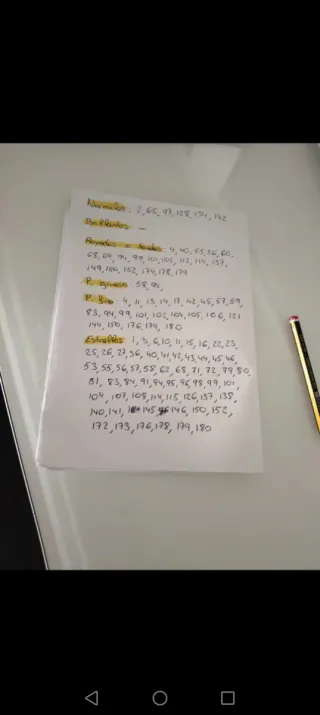 Normales: 2, 65, 97, 128, 134, 142
Brillantes: —
Rayadas o tardes 4, 40, 55, 56, 60,
68, 69, 94, 99, 101, 103, 112, 114, 137,
149, 150, 152, 174, 178, 179
P. grueso 58, 94,
P. fino 4, 11, 13, 14, 17, 42, 45, 57, 59,
83, 94, 99, 101, 102, 104, 105, 106, 121
144, 150, 176, 179, 180
Estrellas 1, 3, 6, 10, 11, 15, 16, 22, 23,
25, 26, 27, 36, 40, 41, 42, 43, 44, 45, 46,
53, 55, 56, 57, 58, 62, 68, 71, 72, 79, 80,
81, 83, 84, 91, 94, 95, 96, 98, 99, 101,
104, 107, 108, 114, 115, 126, 137, 138,
140, 141, 145, 146, 150, 152,
172, 173, 176, 178, 179, 180